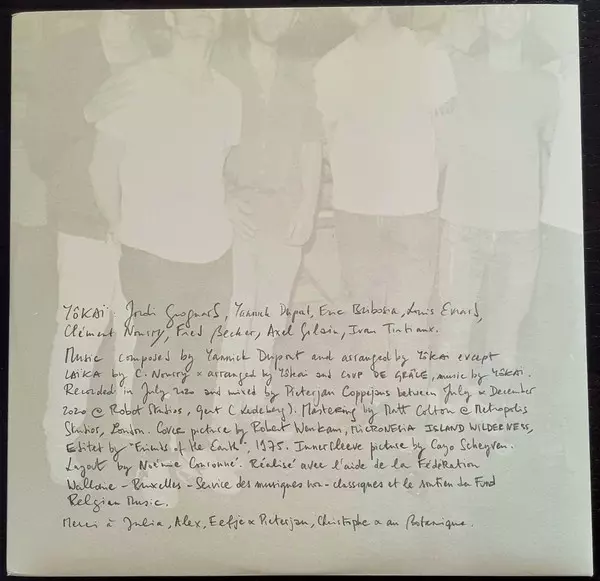 YÔKAÏ : Jordi Grognard, Yannick Dupont, Eric Bribosia, Louis Evrard,
Clément Nourry, Fred Becker, Axel Gilain, Ivan Tirtiaux.
Music composed by Yannick Dupont and arranged by YÔKAI except
LAÏKA by C. Nourry × arranged by Yôkai and COUP DE GRÂCE, music by YÔKAI.
Recorded in July 2020 and mixed by Pieterjan Coppejans between July × December
2020 @ Robot Studios, Gent (Ledeberg). Mastering by Matt Colton @ Metropolis
Studios, London. Cover picture by Robert Wenkam, MICRONESIA ISLAND WILDERNESS,
Edited by "Friends of the Earth", 1975. Innersleeve picture by Cayo Scheyven.
Layout by Noémie Couronné. Réalisé avec l'aide de la Fédération
Wallonie-Bruxelles - Service des musiques non-classiques et le soutien du Fund
Belgian Music.
Merci à Julia, Alex, Eefje × Pieterjan, Christophe × au Botanique.